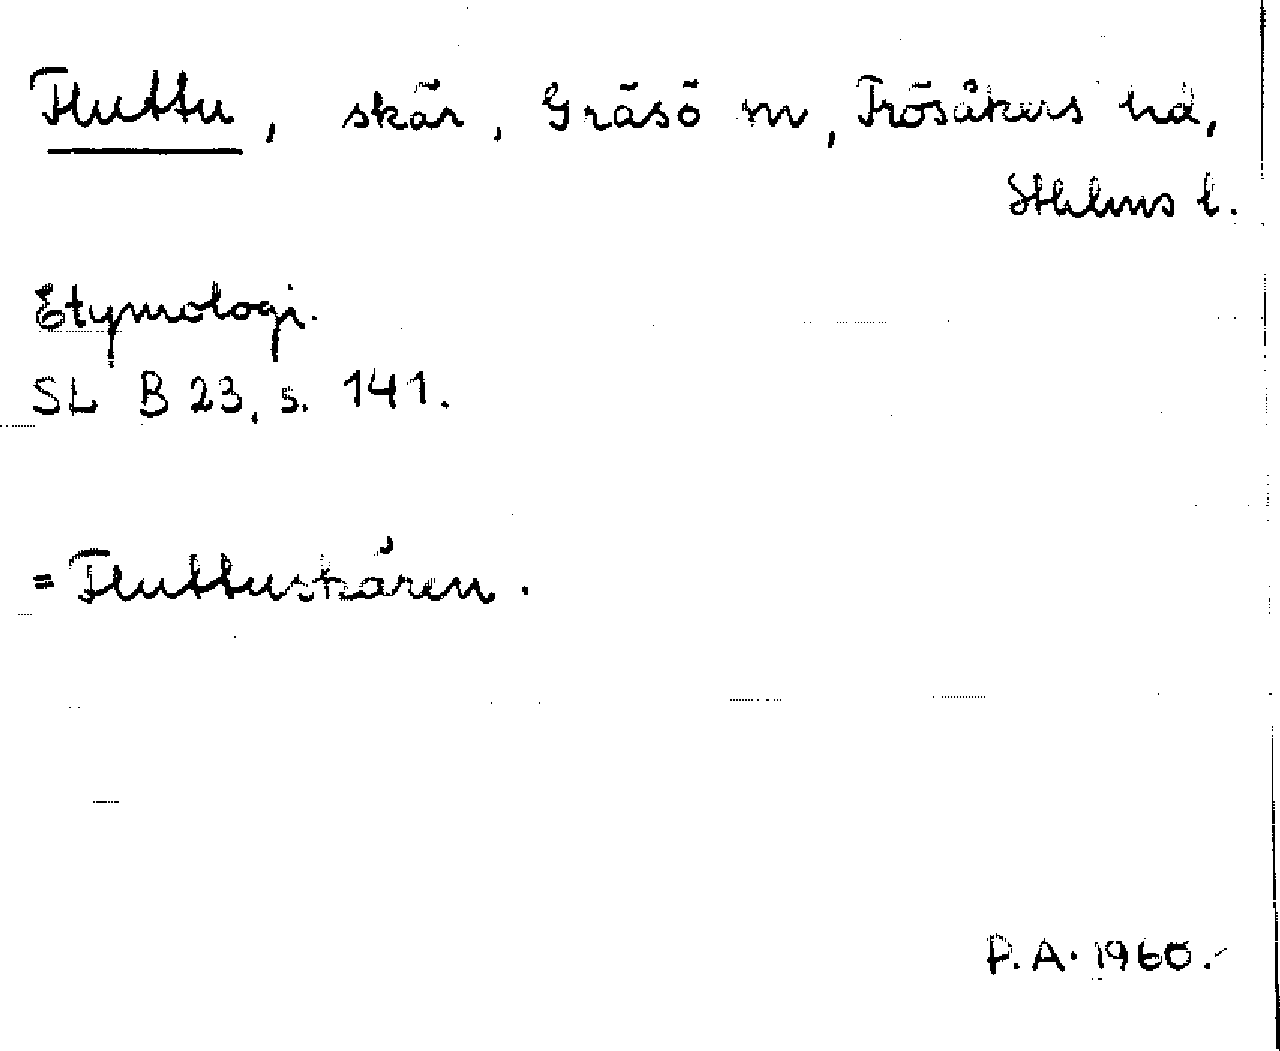 Fluttu, skär, Gräsö sn, Frösåkers hd,
Sthlms l.
Etymologi.
SL B 23, s. 141.
= Fluttuskären.
P.A. 1960.